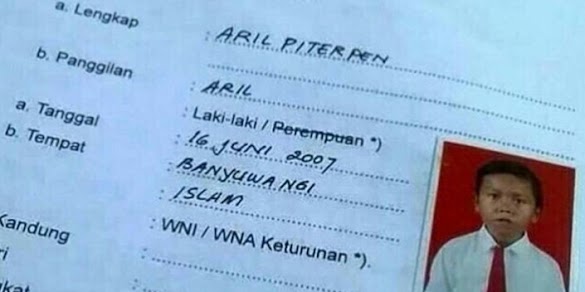 a. Lengkap : ARIL PITERPEN
b. Panggilan : ARIL
: Laki-laki / Perempuan *)
a. Tanggal : 16 JUNI 2007
b. Tempat : BANYUWANGI
: ISLAM
: WNI / WNA Keturunan *).
Kandung :
ri :